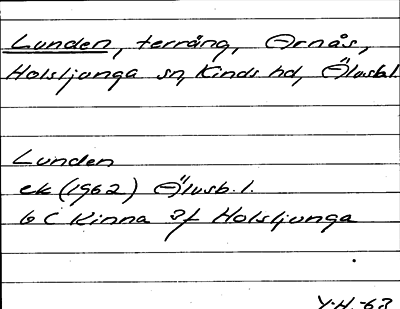 Lunden, terräng, Ornås,
Holsljunga sn, Kinds hd, Älvsb.l.
Lunden
ek (1962) Älvsb. l.
6 C Kinna 3f Holsljunga
Y.H. -63